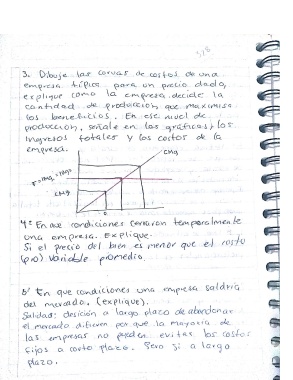 3. Dibuje las curvas de costos de una
empresa típica para un precio dado,
explique como la empresa decide la
cantidad de producción que maximisa
los beneficios. En ese nivel de
producción, señale en las gráficas, los
Ingresos totales y los costos de la
empresa.
CMg
P = IMg = 
CMg
0
4= En que condiciones cerraron temporalmente
una empresa. Explique.
Si el precio del bien es menor que el costo
variable promedio.
5' En que condiciones una empresa saldría
del mercado. (explique).
Salidas: desición a largo plazo de abandonar
el mercado difieren por que la mayoría de
las empresas no pueden evitar los costos
fijos a corto plazo. Pero si a largo
plazo.